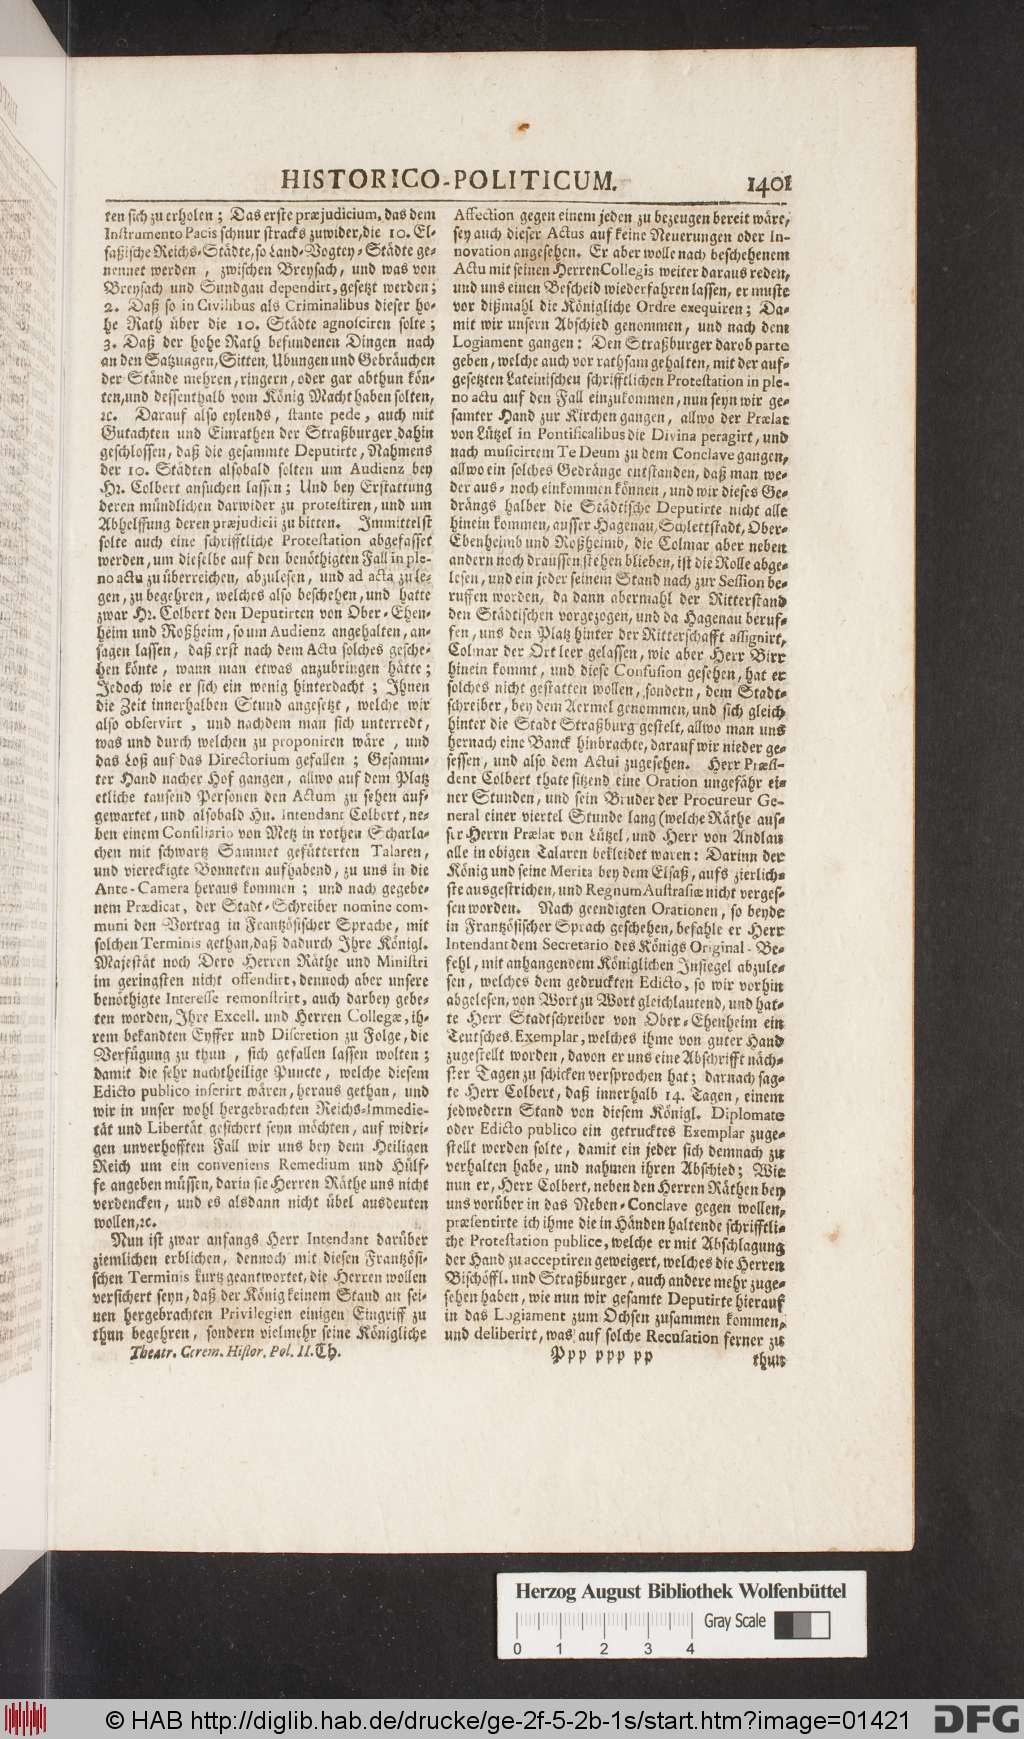 HISTORICO-POLITICUM. 1401
ten sich zu erholen; Das erste præjudicium, das dem
Instrumento Pacis schnur stracks zuwider, die 10. El-
saßische Reichs-Städte, so Land-Vogtey-Städte ge-
nennet werden, zwischen Breysach, und was von
Breysach und Sundgau dependirt, gesetzt werden;
2. Daß so in Civilibus als Criminalibus dieser ho-
he Rath über die 10. Städte agnosciren solte;
3. Daß der hohe Rath befundenen Dingen nach
an den Satzungen, Sitten, Ubungen und Gebräuchen
der Stände mehren, ringern, oder gar abthun kön-
ten, und dessenthalb vom König Macht haben solten,
ꝛc. Darauf also eylends, stante pede, auch mit
Gutachten und Einrathen der Straßburger dahin
geschlossen, daß die gesammte Deputirte, Nahmens
der 10. Städten alsobald solten um Audienz bey
Hr. Colbert ansuchen lassen; Und bey Erstattung
deren mündlichen darwider zu protestiren, und um
Abhelffung deren præjudicii zu bitten. Immittelst
solte auch eine schrifftliche Protestation abgefasset
werden, um dieselbe auf den benöthigten Fall in ple-
no actu zu überreichen, abzulesen, und ad acta zu le-
gen, zu begehren, welches also beschehen, und hatte
zwar Hr. Colbert den Deputirten von Ober-Ehen-
heim und Roßheim, so um Audienz angehalten, an-
sagen lassen, daß erst nach dem Actu solches gesche-
hen könte, wann man etwas anzubringen hätte;
Jedoch wie er sich ein wenig hinterdacht; Ihnen
die Zeit innerhalben Stund angesetzt, welche wir
also observirt, und nachdem man sich unterredt,
was und durch welchen zu proponiren wäre, und
das Loß auf das Directorium gefallen; Gesamm-
ter Hand nacher Hof gangen, allwo auf dem Platz
etliche tausend Personen den Actum zu sehen auf-
gewartet, und alsobald Hn. Intendant Colbert, ne-
ben einem Consiliario von Metz in rothen Scharla-
chen mit schwartz Sammet gefütterten Talaren,
und viereckigte Bonneten aufhabend, zu uns in die
Ante-Camera heraus kommen; und nach gegebe-
nem Prædicat, der Stadt-Schreiber nomine com-
muni den Vortrag in Frantzösischer Sprache, mit
solchen Terminis gethan, daß dadurch Ihre Königl.
Majestät noch Dero Herren Räthe und Ministri
im geringsten nicht offendirt, dennoch aber unsere
benöthigte Interesse remonstrirt, auch darbey gebe-
ten worden, Ihre Excell. und Herren Collegæ, ih-
rem bekandten Eyffer und Discretion zu Folge, die
Verfügung zu thun, sich gefallen lassen wolten;
damit die sehr nachtheilige Puncte, welche diesem
Edicto publico inserirt wären, heraus gethan, und
wir in unser wohl hergebrachten Reichs-Immedie-
tät und Libertät gesichert seyn möchten, auf widri-
gen unverhofften Fall wir uns bey dem Heiligen
Reich um ein conveniens Remedium und Hülf-
fe angeben müssen, darin sie Herren Räthe uns nicht
verdencken, und es alsdann nicht übel ausdeuten
wollen, ꝛc.
Nun ist zwar anfangs Herr Intendant darüber
ziemlichen erblichen, dennoch mit diesen Frantzösi-
schen Terminis kurtz geantwortet, die Herren wollen
versichert seyn, daß der König keinem Stand an sei-
nen hergebrachten Privilegien einigen Eingriff zu
thun begehren, sondern vielmehr seine Königliche
Theatr. Cerem. Histor. Pol. II. Th.
Affection gegen einem jeden zu bezeugen bereit wäre,
sey auch dieser Actus auf keine Neuerungen oder In-
novation angesehen. Er aber wolle nach beschehenem
Actu mit seinen Herren Collegis weiter daraus reden,
und uns einen Bescheid wiederfahren lassen, er muste
vor dißmahl die Königliche Ordre exequiren; Da-
mit wir unsern Abschied genommen, und nach dem
Logiament gangen: Den Straßburger darob parte
geben, welche auch vor rathsam gehalten, mit der auf-
gesetzten Lateinischen schrifftlichen Protestation in ple-
no actu auf den Fall einzukommen, nun seyn wir ge-
samter Hand zur Kirchen gangen, allwo der Prælat
von Lützel in Pontificalibus die Divina peragirt, und
nach musicirtem Te Deum zu dem Conclave gangen,
allwo ein solches Gedränge entstanden, daß man we-
der aus- noch einkommen können, und wir dieses Ge-
drängs halber die Städtische Deputirte nicht alle
hinein kommen, ausser Hagenau, Schlettstadt, Ober-
Ebenheimb und Roßheimb, die Colmar aber neben
andern noch draussen stehen blieben, ist die Rolle abge-
lesen, und ein jeder seinem Stand nach zur Session be-
ruffen worden, da dann abermahl der Ritterstand
den Städtischen vorgezogen, und da Hagenau beruf-
fen, uns den Platz hinter der Ritterschafft assignirt,
Colmar der Ort leer gelassen, wie aber Herr Birr
hinein kommt, und diese Confusion gesehen, hat er
solches nicht gestatten wollen, sondern, dem Stadt-
schreiber, bey dem Aermel genommen, und sich gleich
hinter die Stadt Straßburg gestelt, allwo man uns
hernach eine Banck hinbrachte, darauf wir nieder ge-
sessen, und also dem Actui zugesehen. Herr Præsi-
dent Colbert thate sitzend eine Oration ungefähr ei-
ner Stunden, und sein Bruder der Procureur Ge-
neral einer viertel Stunde lang (welche Räthe aus-
ser Herrn Prælat von Lützel, und Herr von Andlau
alle in obigen Talaren bekleidet waren: Darinn der
König und seine Merita bey dem Elsaß, aufs zierlich-
ste ausgestrichen, und Regnum Austrasiæ nicht verges-
sen worden. Nach geendigten Orationen, so beyde
in Frantzösischer Sprach geschehen, befahle er Herr
Intendant dem Secretario des Königs Original-Be-
fehl, mit anhangendem Königlichen Insiegel abzule-
sen, welches dem gedruckten Edicto, so wir vorhin
abgelesen, von Wort zu Wort gleichlautend, und hat-
te Herr Stadtschreiber von Ober-Ehenheim ein
Teutsches Exemplar, welches ihme von guter Hand
zugestellt worden, davon er uns eine Abschrifft näch-
ster Tagen zu schicken versprochen hat; darnach sag-
te Herr Colbert, daß innerhalb 14. Tagen, einem
jedwedern Stand von diesem Königl. Diplomate
oder Edicto publico ein getrucktes Exemplar zuge-
stellt werden solte, damit ein jeder sich demnach zu
verhalten habe, und nahmen ihren Abschied; Wie
nun er, Herr Colbert, neben den Herren Räthen bey
uns vorüber in das Neben-Conclave gegen wollen,
præsentirte ich ihme die in Händen haltende schrifftli-
che Protestation publice, welche er mit Abschlagung
der Hand zu acceptiren geweigert, welches die Herren
Bischöffl. und Straßburger, auch andere mehr zuge-
sehen haben, wie nun wir gesamte Deputirte hierauf
in das Logiament zum Ochsen zusammen kommen,
und deliberirt, was auf solche Recusation ferner zu
Ppp ppp pp thun
Herzog August Bibliothek Wolfenbüttel
Gray Scale
0 1 2 3 4
© HAB http://diglib.hab.de/drucke/ge-2f-5-2b-1s/start.htm?image=01421 DFG